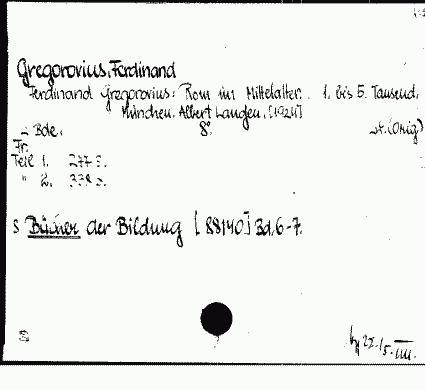 Gregorovius, Ferdinand
Ferdinand Gregorovius: Rom im Mittelalter. 1. bis 5. Tausend.
München. Albert Langen, [1924]
2 Bde. 8°
Fr.
Teil 1. 277 S.
" 2. 338 S.
S Bücher der Bildung [88140] Bd. 6-7.